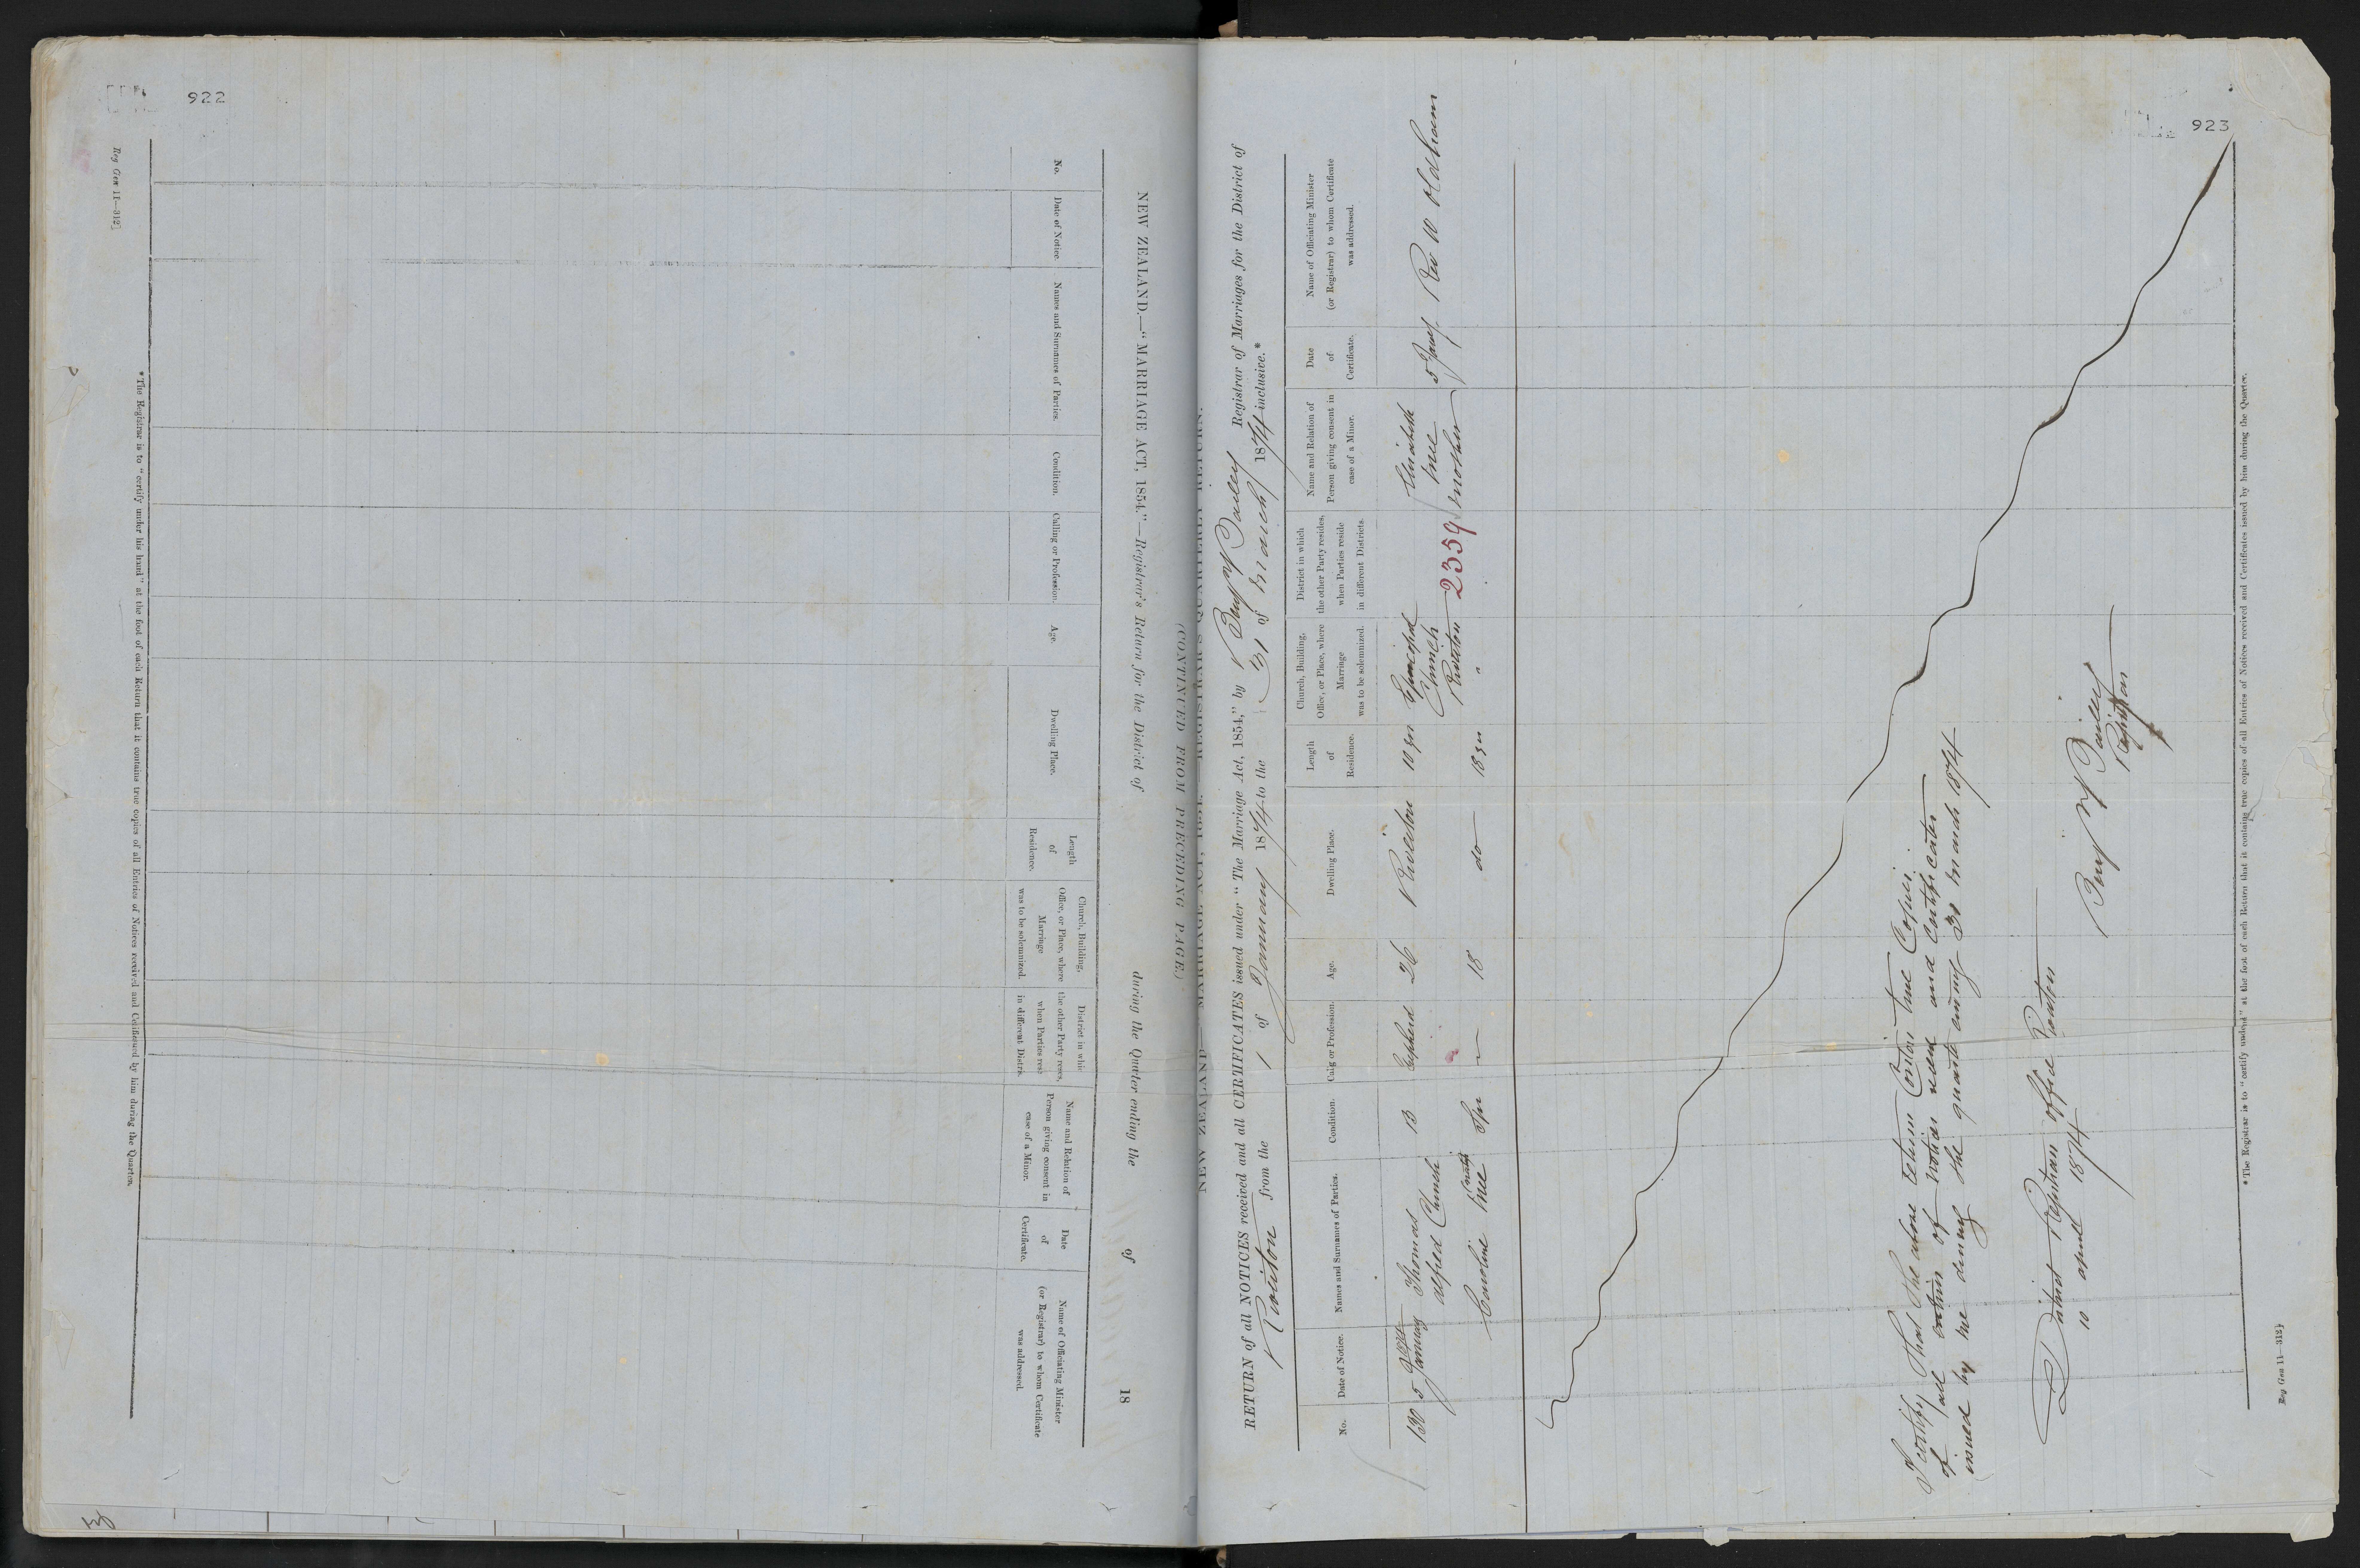 922
NEW ZEALAND.—"MARRIAGE ACT, 1854."—Registrar's Return for the District of during the Quarter ending the of 18
No.
Date of Notice.
Names and Surnames of Parties.
Condition.
Calling or Profession.
Age.
Dwelling Place.
Length
of
Residence.
Church, Building,
Office, or Place, where
Marriage
was to be solemnized.
District in whic
the other Party reses,
when Parties rese
in different Distris.
Name and Relation of
Person giving consent in
case of a Minor.
Date
of
Certificate.
Name of Officiating Minister
(or Registrar) to whom Certificate
was addressed.
*The Registrar is to "certify under his hand" at the foot of each Return that it contains true copies of all Entries of Notices received and Cetifiesued by him during the Quarten.
Reg Gen 11—312]
923
(CONTINUED FROM PRECEDING PAGE.)
NEW ZEALAND.—MARRIAGE ACT, 1854.—REGISTRAR'S QUARTERLY RETURN.
RETURN of all NOTICES received and all CERTIFICATES issued under "The Marriage Act, 1854," by Benj Bailey Registrar of Marriages for the District of
Riverton from the 1 of January 1874 to the 31 of March 1874 inclusive.*
No.
Date of Notice.
Names and Surnames of Parties.
Condition.
Calig or Profession.
Age.
Dwelling Place.
Length
of
Residence.
Church, Building,
Office, or Place, where
Marriage
was to be solemnized.
District in which
the other Party resides,
when Parties reside
in different Districts.
Name and Relation of
Person giving consent in
case of a Minor.
Date
of
Certificate.
Name of Officiating Minister
(or Registrar) to whom Certificate
was addressed.
130 5 January Thomas B 26 Riverton 10 yrs Episcopal Elizabeth 5 Jany Rev W Oldham
Alfred Church Church
Riverton 2359 mother
Caroline Spr — 18 do 18 yrs "
I certify that the above return Contain true Copies
of all entries of notices recd and Certificates
issued by me during the quarter ending 31 March 1874
District Registrars office Riverton
10 April 1874
Benj Bailey
Registrar
*The Registrar is to "certify undend" at the foot of each Return that it contains true copies of all Entries of Notices received and Certificates issued by him during the Quarter.
Reg Gen 11—312]